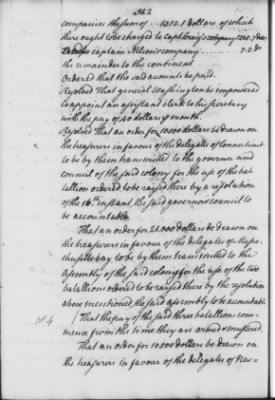 342
companies the sum of 1312.1 dollars of which
there ought to be charged to Capt Craig's company
to captain Nelson's company 72 do
the remainder to the continent
Ordered that the said accounts be paid.
Resolved That general Washington be empowered
to appoint an assistant clerk to his secretary
with the pay of 40 dollars ℔ month.
Resolved That an order for 10000 dollars be drawn on
the treasurers in favour of the delegates of Connecticut
to be by them transmitted to the governor and
council of the said colony for the use of the bat
tallion ordered to be raised there by a resolution
of the 16th instant, the said governor & council to
be accountable
That an order for 21,000 dollars be drawn on
the treasurers in favour of the delegates of Massa
chusetts bay to be by them transmitted to the
Assembly of the said colony for the use of the two
batallions ordered to be raised there by the resolution
above mentioned, the said assembly to be accountable
That the pay of the said three batallions com-
mence from the time they are armed & mustered.
That an order for 12500 dollars be drawn on
the treasurers in favour of the delegates of New-